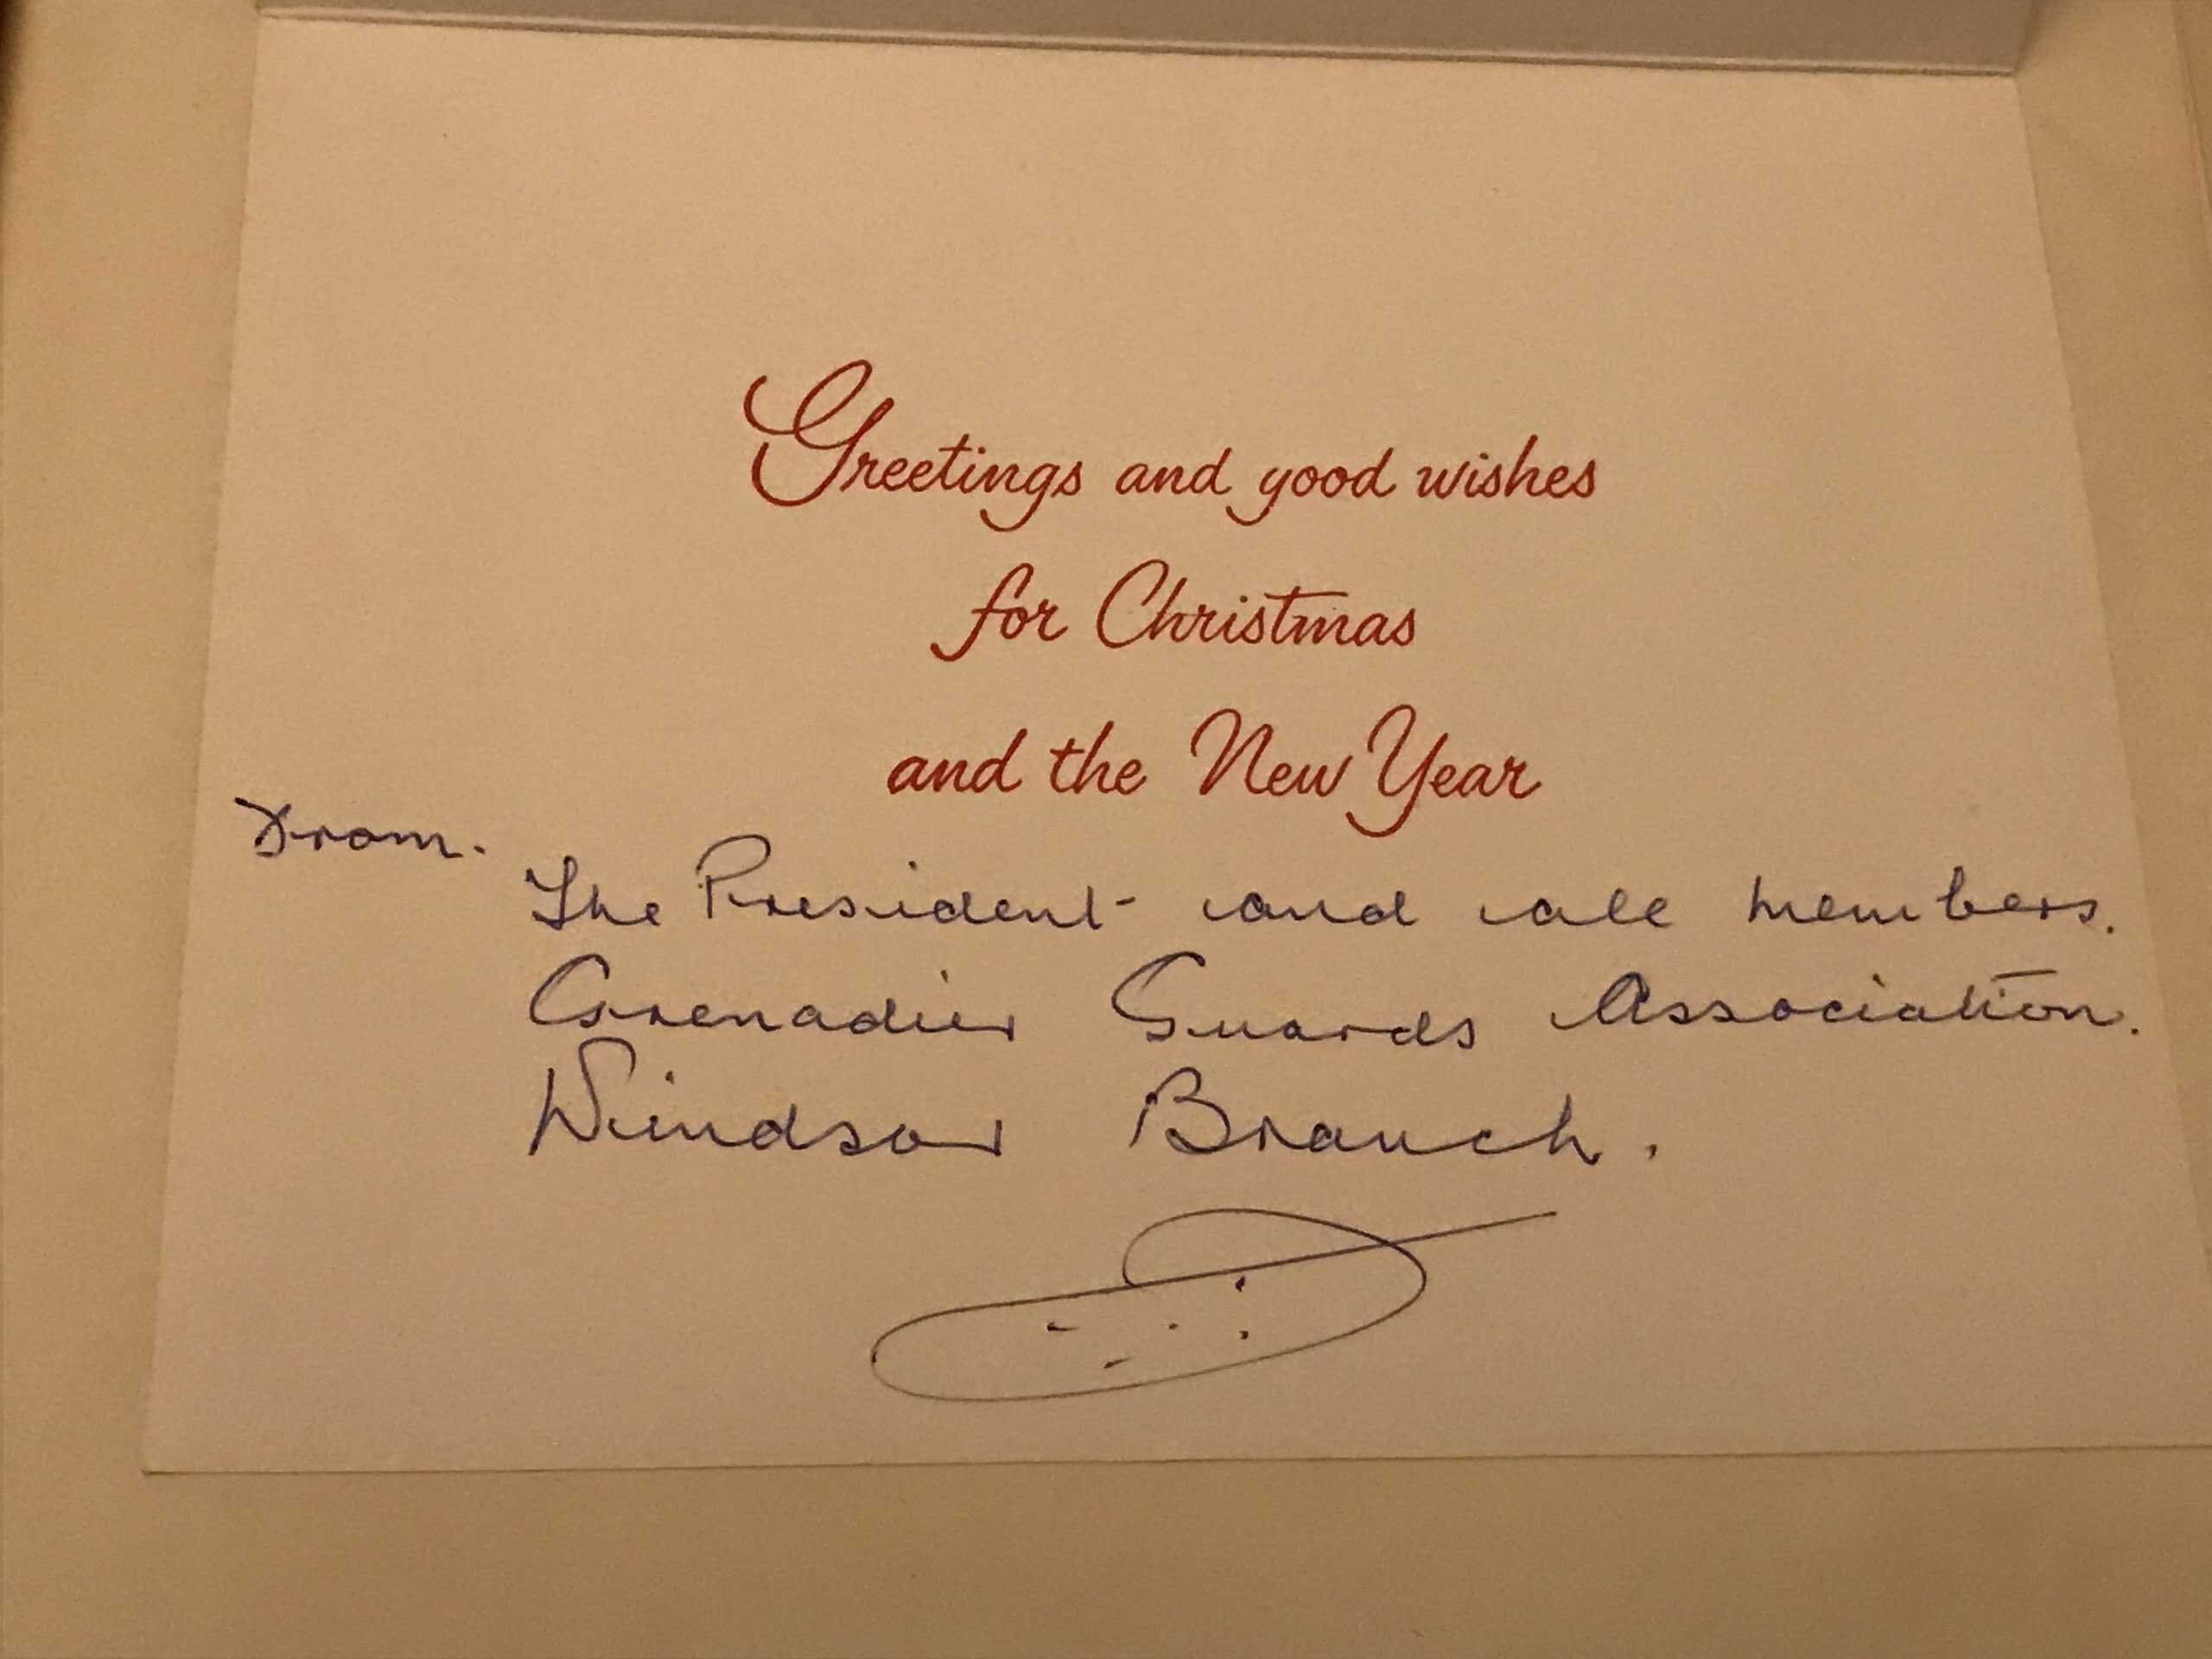 Greetings and good wishes
for Christmas
and the New Year
From.
The President and all members.
Grenadier Guards Association.
Windsor Branch.